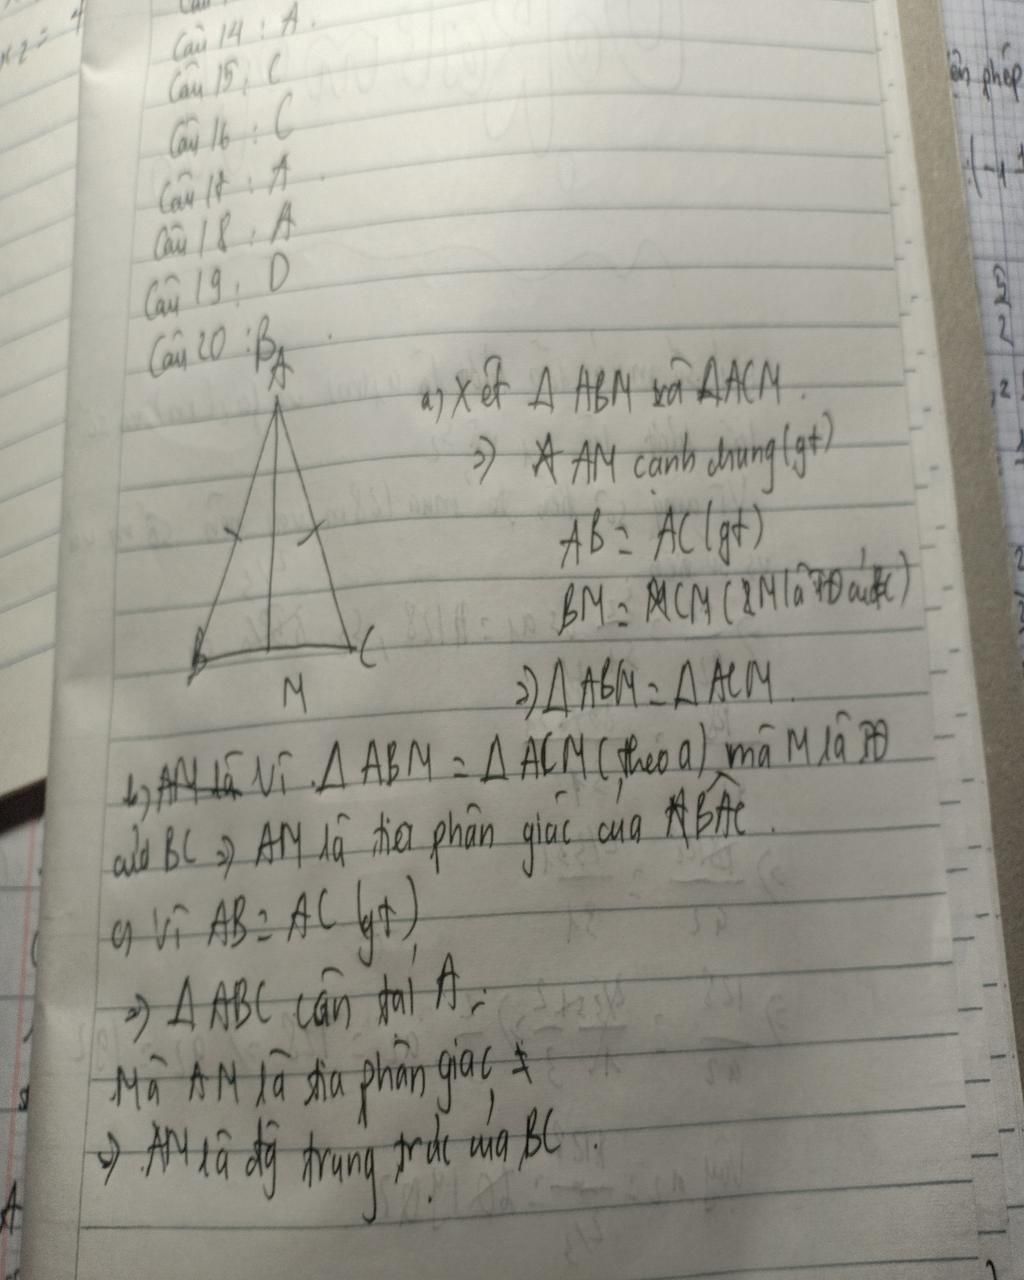 Câu 14 : A.
Câu 15 : C
Câu 16 : C
Câu 17 : A.
Câu 18 : A
Câu 19 : D
Câu 20 : B.
A
B
C
M
a) Xét Δ ABM và ΔACM.
=) AM cạnh chung (gt)
AB = AC (gt)
BM = CM ( M là TĐ của BC)
=) Δ ABM = Δ ACM.
b) AM là Vì Δ ABM = Δ ACM (theo a) mà M là TĐ
của BC =) AM là tia phân giác của BAC.
c) Vì AB = AC (gt)
=) Δ ABC cân tại A.
Mà AM là tia phân giác
=) AM là đg trung trực của BC.
ên phép